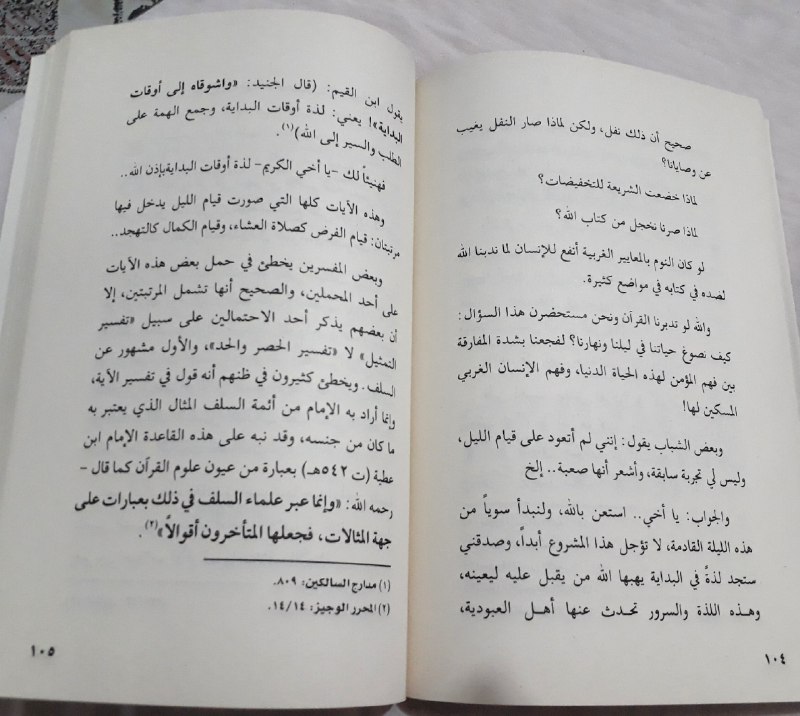 صحيح أن ذلك نفل، ولكن لماذا صار النفل يغيب
عن وصايانا؟
لماذا خضعت الشريعة للتخفيضات؟
لماذا صرنا نخجل من كتاب الله؟
لو كان النوم بالمعايير الغربية أنفع للإنسان لما ندبنا الله
لضده في كتابه في مواضع كثيرة.
والله لو تدبرنا القرآن ونحن مستحضرن هذا السؤال:
كيف نصوغ حياتنا في ليلنا ونهارنا؟ لفجعنا بشدة المفارقة
بين فهم المؤمن لهذه الحياة الدنيا، وفهم الإنسان الغربي
المسكين لها!
وبعض الشباب يقول: إنني لم أتعود على قيام الليل،
وليس لي تجربة سابقة، وأشعر أنها صعبة.. إلخ
والجواب: يا أخي.. استعن بالله، ولنبدأ سوياً من
هذه الليلة القادمة، لا تؤجل هذا المشروع أبداً، وصدقني
ستجد لذةً في البداية يهبها الله من يقبل عليه ليعينه،
وهذه اللذة والسرور تحدث عنها أهل العبودية،
١٠٤
يقول ابن القيم: (قال الجنيد: «واشوقاه إلى أوقات
البداية»! يعني: لذة أوقات البداية، وجمع الهمة على
الطلب والسير إلى الله)(١).
فهنيئاً لك -يا أخي الكريم- لذة أوقات البدايةبإذن الله..
وهذه الآيات كلها التي صورت قيام الليل يدخل فيها
مرتبتان: قيام الفرض كصلاة العشاء، وقيام الكمال كالتهجد..
وبعض المفسرين يخطئ في حمل بعض هذه الآيات
على أحد المحملين، والصحيح أنها تشمل المرتبتين، إلا
أن بعضهم يذكر أحد الاحتمالين على سبيل «تفسير
التمثيل» لا «تفسير الحصر والحد»، والأول مشهور عن
السلف. ويخطئ كثيرون في ظنهم أنه قول في تفسير الآية،
وإنما أراد به الإمام من أئمة السلف المثال الذي يعتبر به
ما كان من جنسه، وقد نبه على هذه القاعدة الإمام ابن
عطية (ت ٥٤٢هـ) بعبارة من عيون علوم القرآن كما قال -
رحمه الله: «وإنما عبر علماء السلف في ذلك بعبارات على
جهة المثالات، فجعلها المتأخرون أقوالاً»(٢).
(١) مدارج السالكين: ٨٠٩.
(٢) المحرر الوجيز: ١٤/١٤.
١٠٥